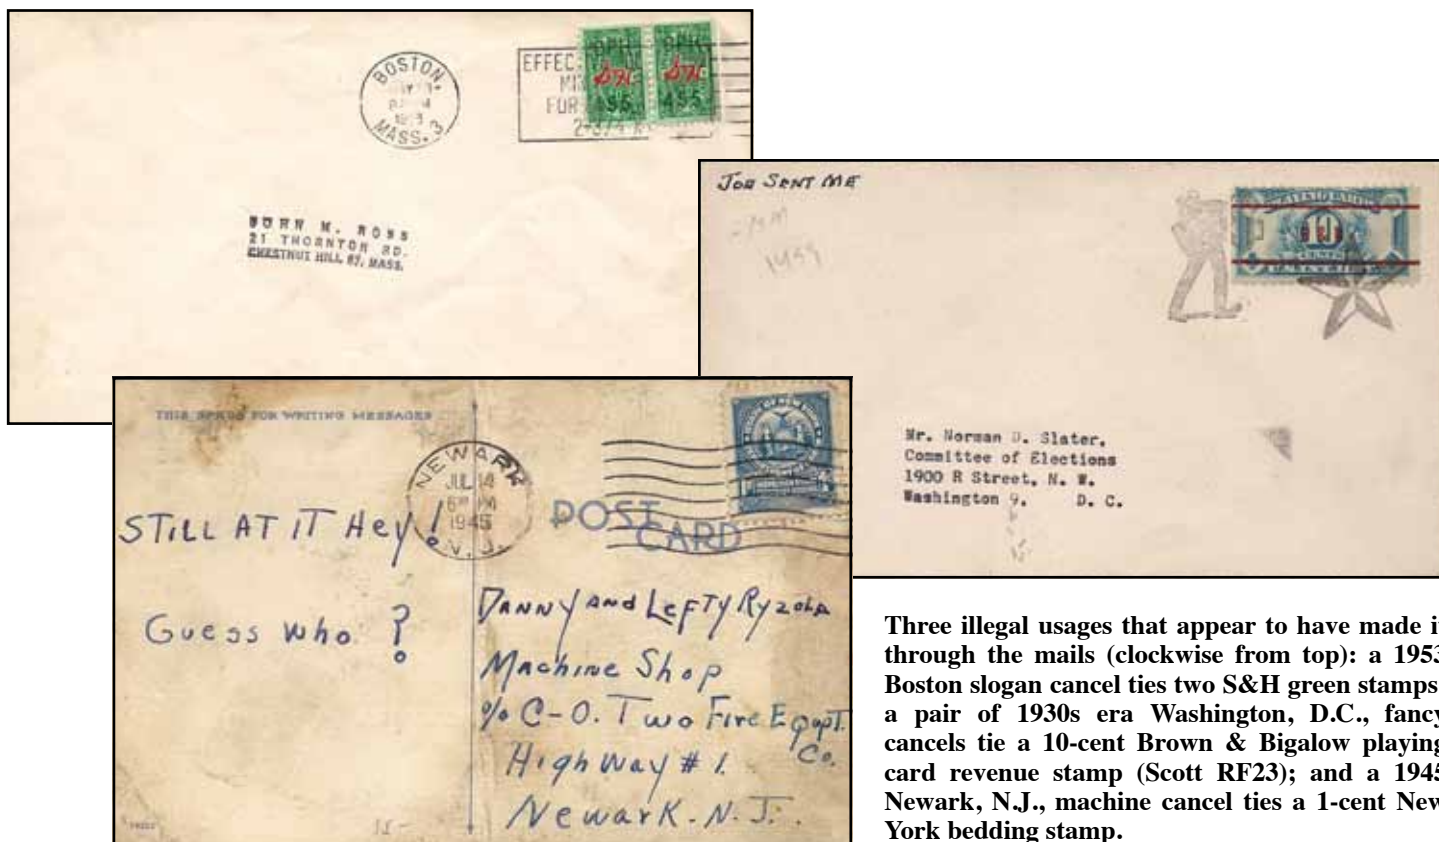 BOSTON
MASS. 3
EFFEC
FOR
DPH DPH
S&H S&H
455 455
M. ROSS
21 THORNTON RD.
CHESTNUT HILL 67, MASS.
JOE SENT ME
10
CENTS
Mr. Norman D. Slater,
Committee of Elections
1900 R Street, N. W.
Washington 9. D. C.
THIS SPACE FOR WRITING MESSAGES
NEWARK
JUL 14
1945
N.J.
POST
CARD
STILL AT IT Hey!
Guess who ?
DANNY AND LEFTY Ryzola
Machine Shop
% C-O. Two Fire Eqopt.
Co.
Highway # 1.
Newark. N. J.
Three illegal usages that appear to have made i
through the mails (clockwise from top): a 1953
Boston slogan cancel ties two S&H green stamps
a pair of 1930s era Washington, D.C., fancy
cancels tie a 10-cent Brown & Bigalow playing
card revenue stamp (Scott RF23); and a 1945
Newark, N.J., machine cancel ties a 1-cent New
York bedding stamp.